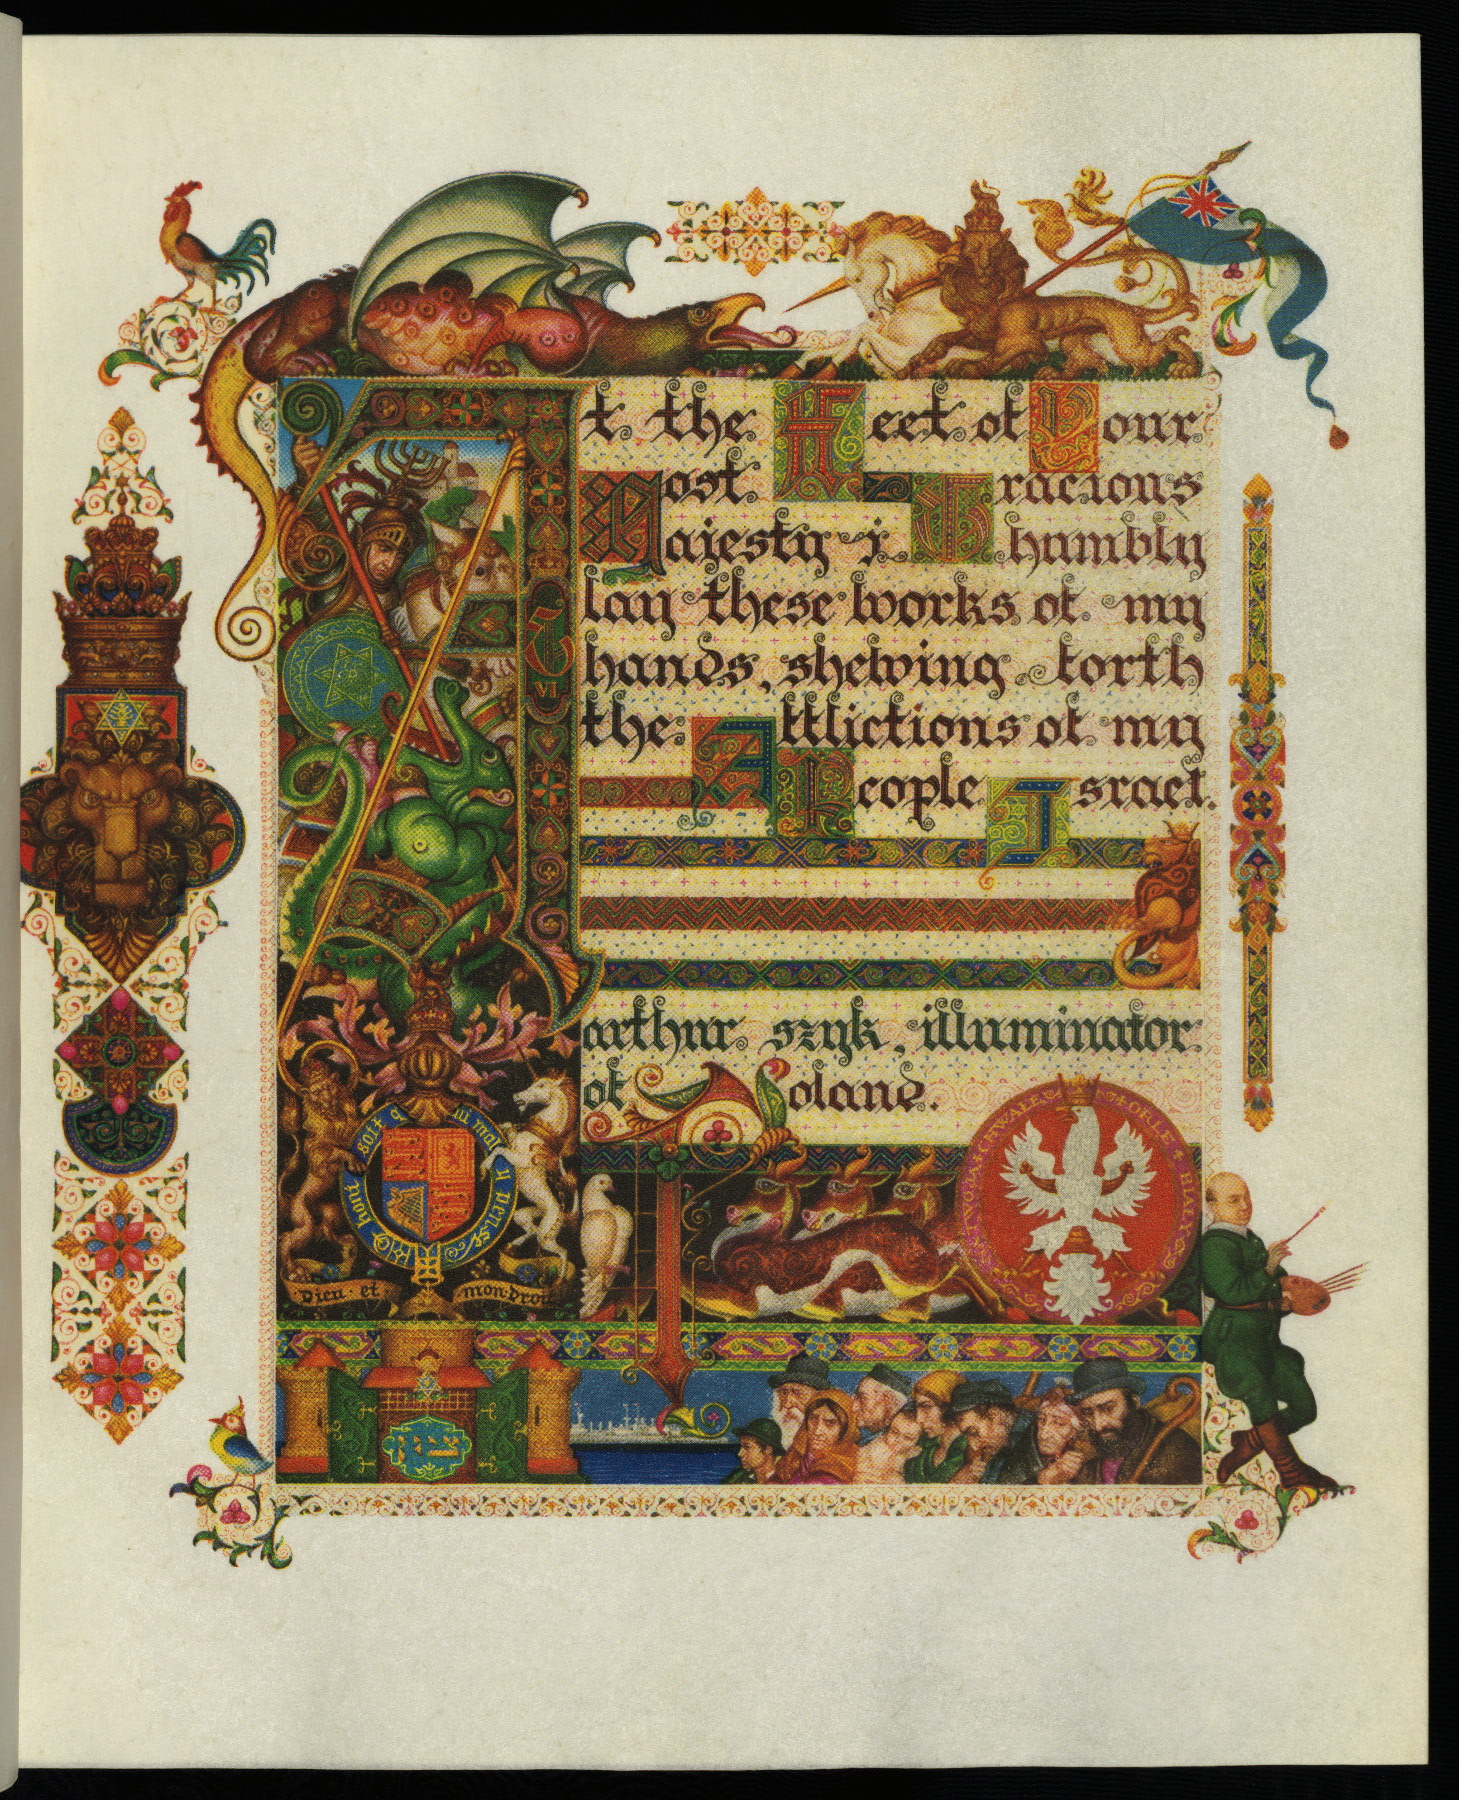 At the Feet of Your
Most Gracious
Majesty i humbly
lay these works of my
hands, shewing forth
the Afflictions of my
People Israel.
arthur szyk, illuminator
of Poland.
VI
honi soit q
ui mal y pense
Dieu et
mon droit